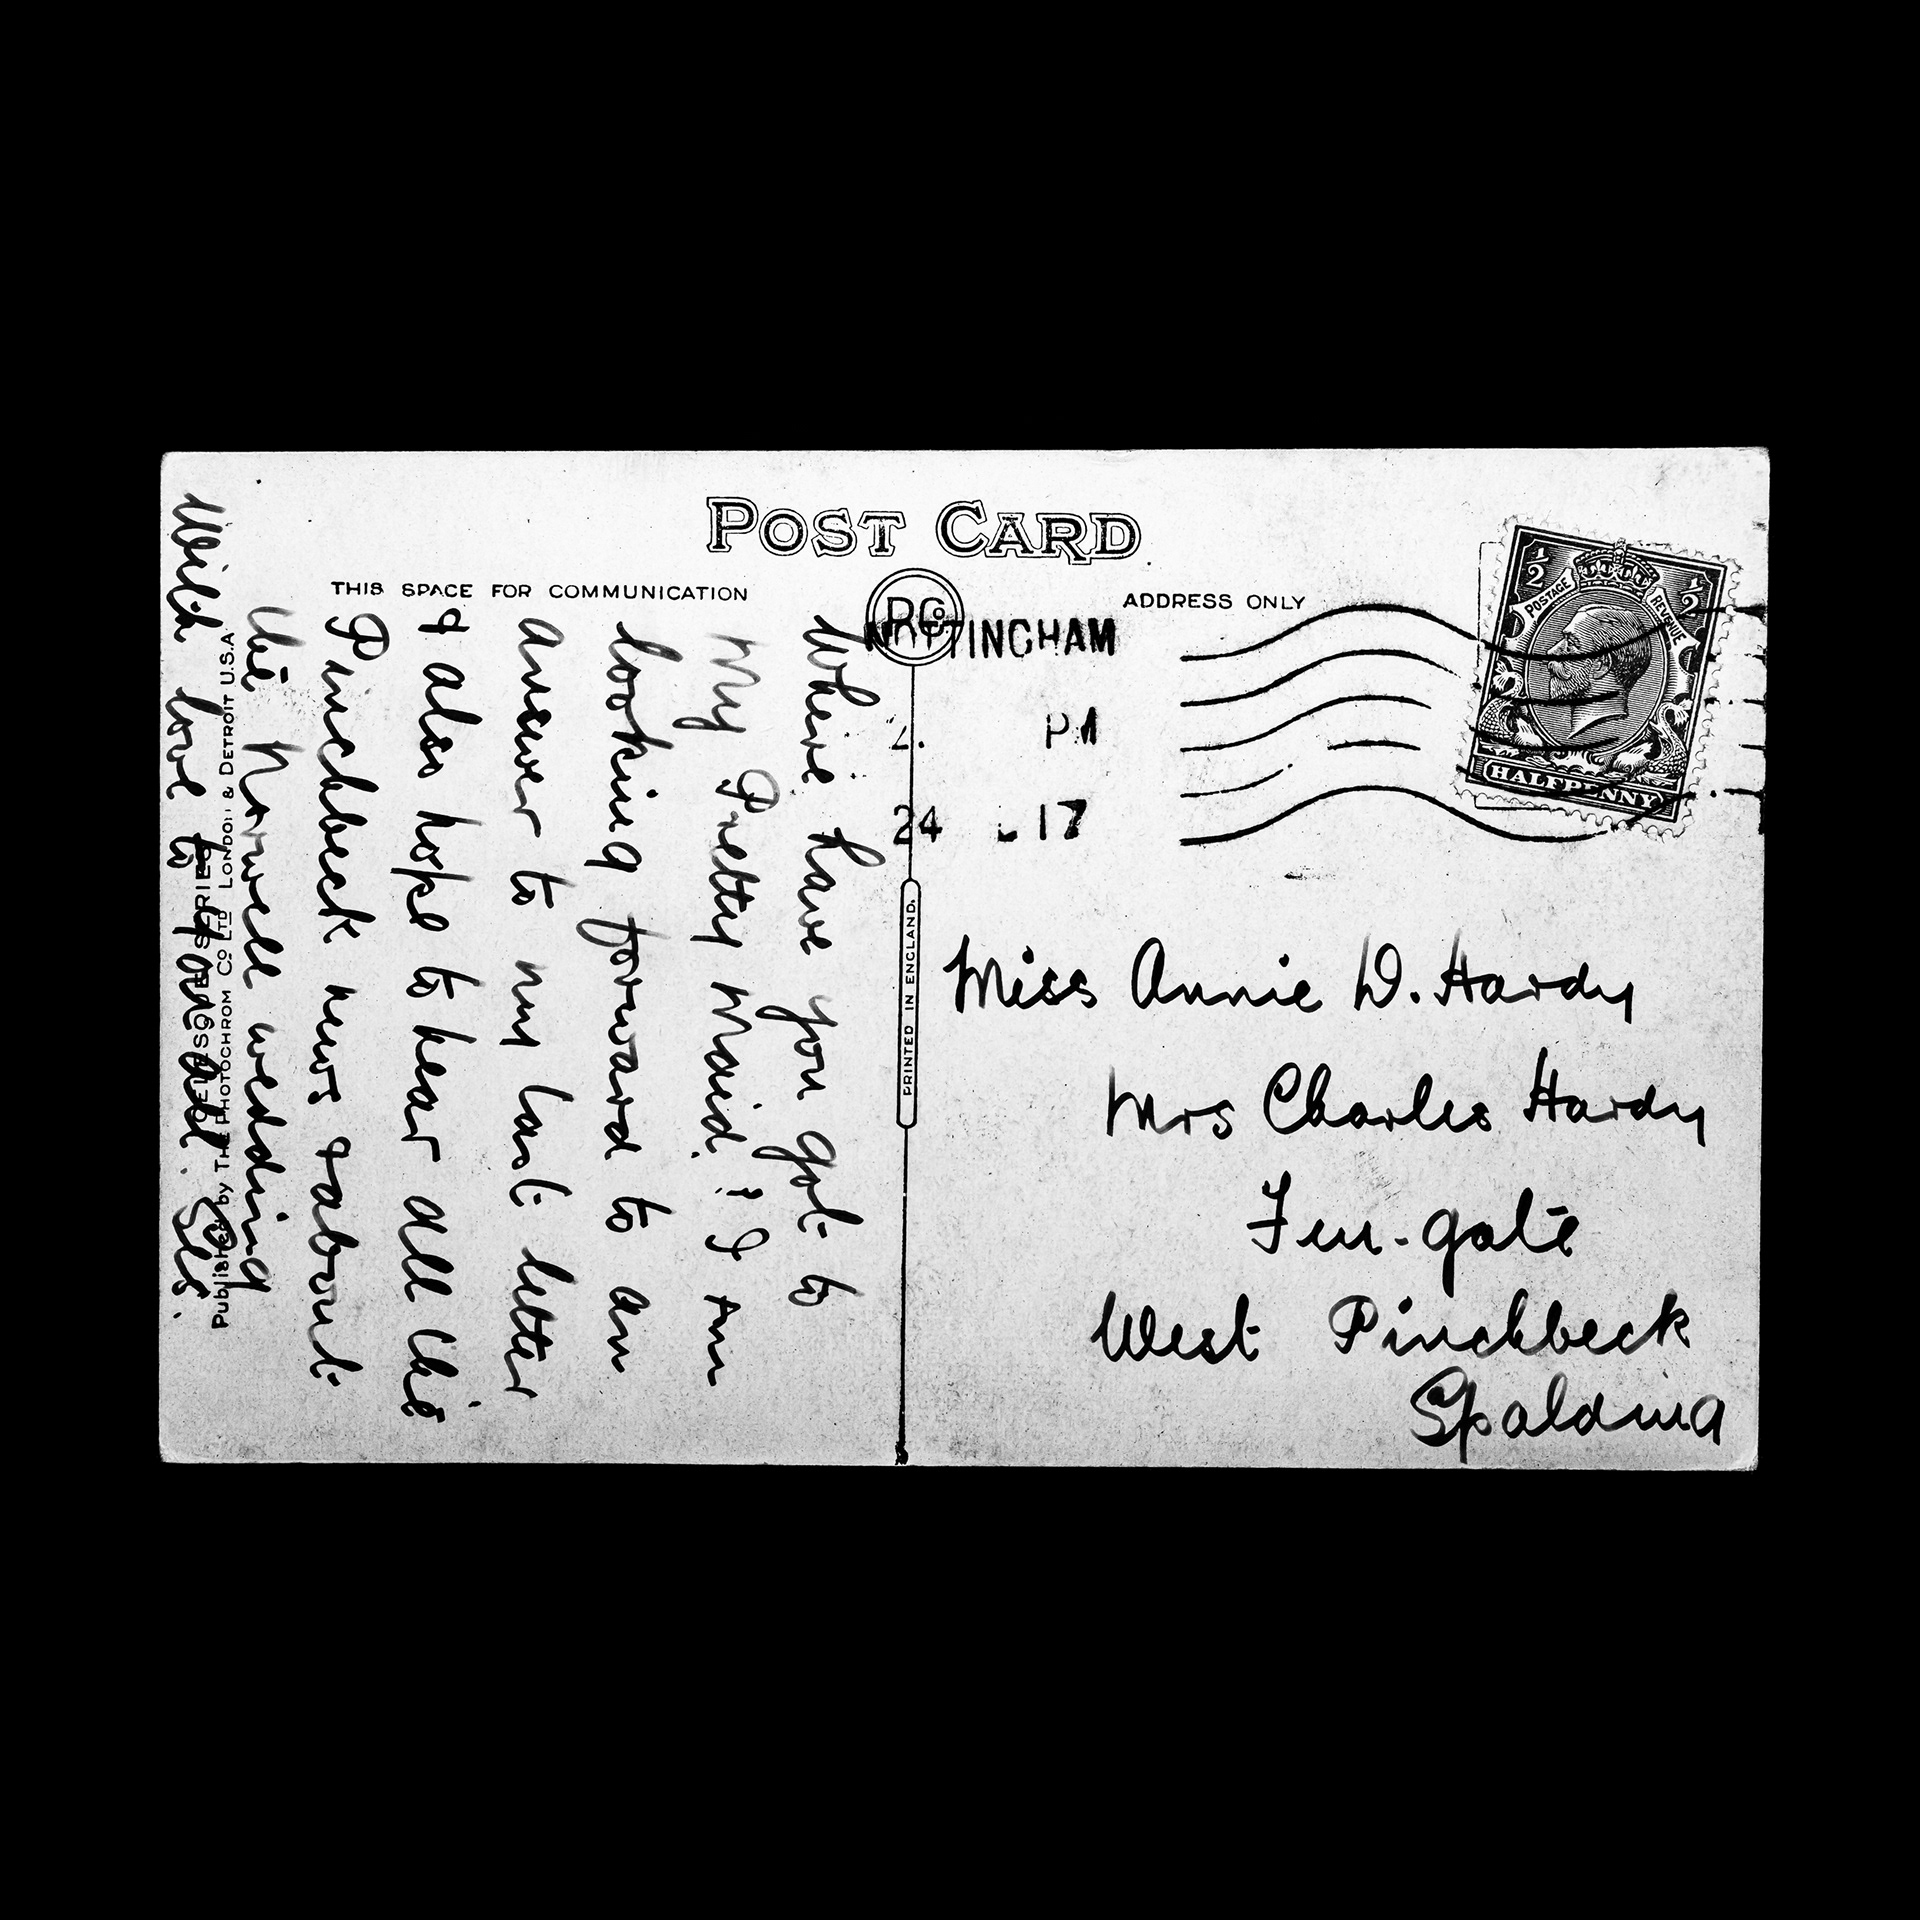 POST CARD
THIS SPACE FOR COMMUNICATION
ADDRESS ONLY
Where have you got to
My Pretty Maid! ? I am
looking forward to an
answer to my last letter
& also hope to hear all the
Pinchbeck news & about
the Norwell wedding
With love to you all.
Published by THE PHOTOCHROM CO LTD LONDON & DETROIT U.S.A
SERIES
PRINTED IN ENGLAND.
NOTTINGHAM
PM
24 17
½ ½
POSTAGE REVENUE
HALFPENNY
Miss Annie D. Hardy
Mrs Charles Hardy
Fen-gate
West Pinchbeck
Spalding